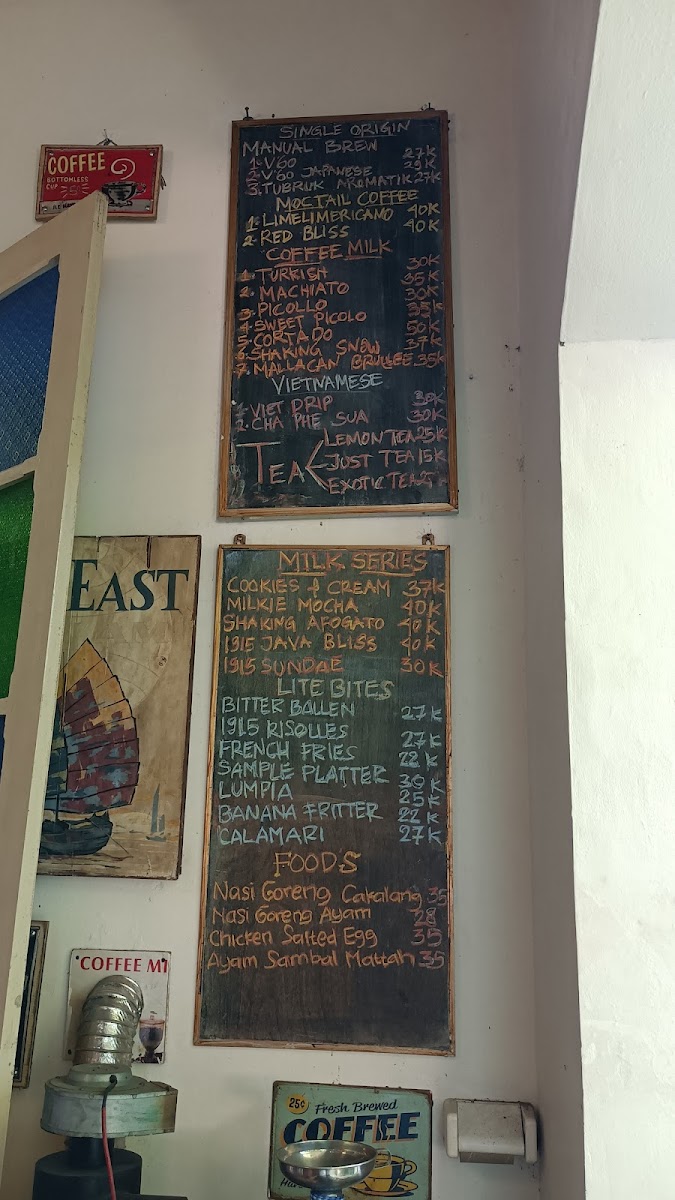 COFFEE
BOTTOMLESS
CUP 5¢
SINGLE ORIGIN
MANUAL BREW
1. V'60 27K
2. V'60 JAPANESE 29K
3. TUBRUK AROMATIK 27K
MOCTAIL COFFEE
1. LIMELIMERICANO 40K
2. RED BLISS 40K
COFFEE MILK
1. TURKISH 30K
2. MACHIATO 35K
3. PICOLLO 30K
4. SWEET PICOLO 35K
5. CORTADO 50K
6. SHAKING SNOW 37K
7. MALLACAN BRULLEE 35K
VIETNAMESE
1. VIET DRIP 30K
2. CHA PHE SUA 30K
TEA
LEMON TEA 25K
JUST TEA 15K
EXOTIC TEA 25
EAST
MILK SERIES
COOKIES & CREAM 37K
MILKIE MOCHA 40K
SHAKING AFOGATO 40K
1915 JAVA BLISS 40K
1915 SUNDAE 30K
LITE BITES
BITTER BALLEN 27K
1915 RISOLLES 27K
FRENCH FRIES 22K
SAMPLE PLATTER 30K
LUMPIA 25K
BANANA FRITTER 22K
CALAMARI 27K
FOODS
Nasi Goreng Cakalang 35
Nasi Goreng Ayam 28
Chicken Salted Egg 35
Ayam Sambal Mattah 35
COFFEE MI
25¢ Fresh Brewed
COFFEE